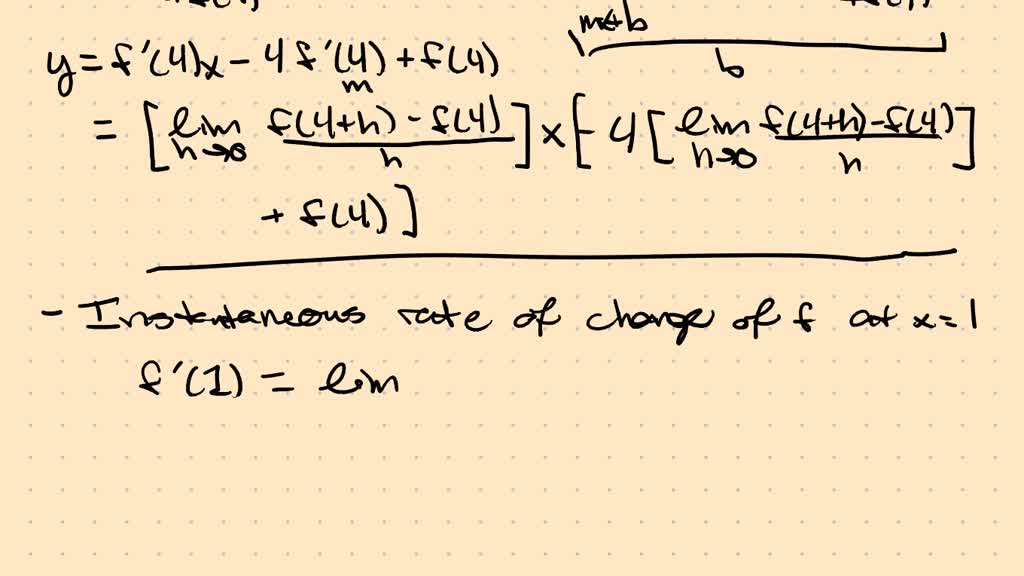 m b
y = f'(4)x - 4 f'(4) + f(4)
m
b
= [lim h→0 f(4+h) - f(4) / h] x [- 4 [lim h→0 f(4+h) - f(4) / h]
+ f(4)]
- Instantaneous rate of change of f at x=1
f'(1) = lim